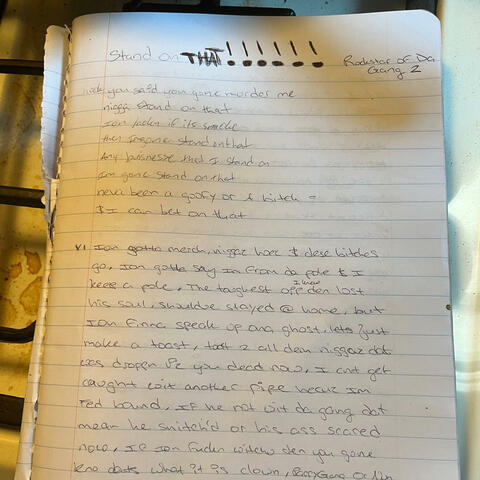 Stand on THAT!!!!!!
Rockstar of Da
Gang 2
you said you gone murder me
nigga stand on that
Ion fuckn if its smoke
then Imgone stand on that
Any buisnesse that I stand on
Im gone stand on that
neva been a goofy or a bitch =
$ I can bet on that
V1 Ion gotta merch, niggaz hoez $ dese bitches
go, Ion gotta say Im From da pole $ I
keep a pole, The toughest opp I knew den lost
his soul, shoulde stayed @ home, but
Ion Finna speak up ona ghost, lets just
make a toast, toast 2 all dem niggaz dat
was droppn Ps you dead now, I cant get
caught wit another pipe becuz Im
red bound, IF he not wit da gang dat
mean he snitch'd or his ass scared
now, IF Ion Fuckn witchu den you gone
kno dats what it is clown,